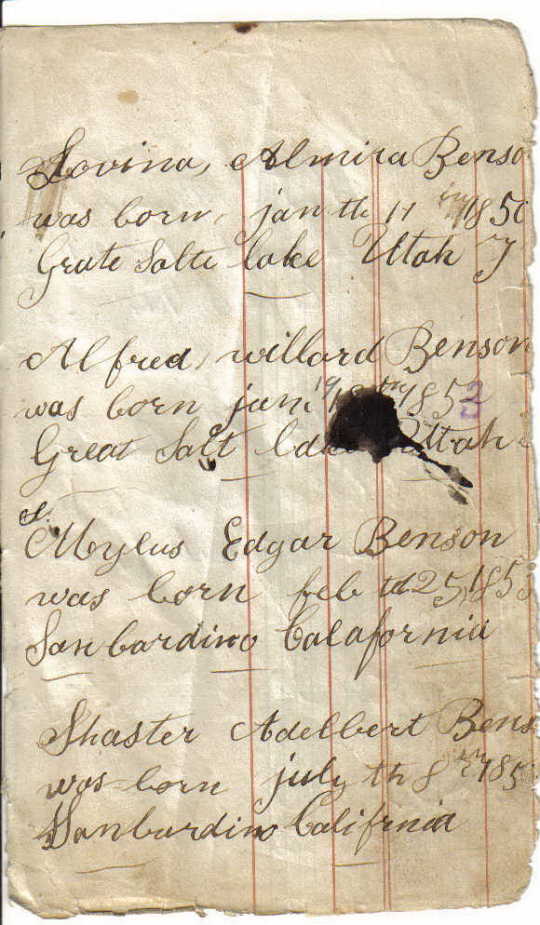 Lovina, Almira Benso
was born, jan th 11 in 1850
Grate Salte lake Utah T
Alfred, willard Benson
was born jan 19 th 1852
Great Salt lake Utah
S.
Mylus Edgar Benson
was born feb td 25, 185
San bardino Calafornia
Shaster Adelbert Bens
was born july th 8 in 185
Sanburdino Califrnia